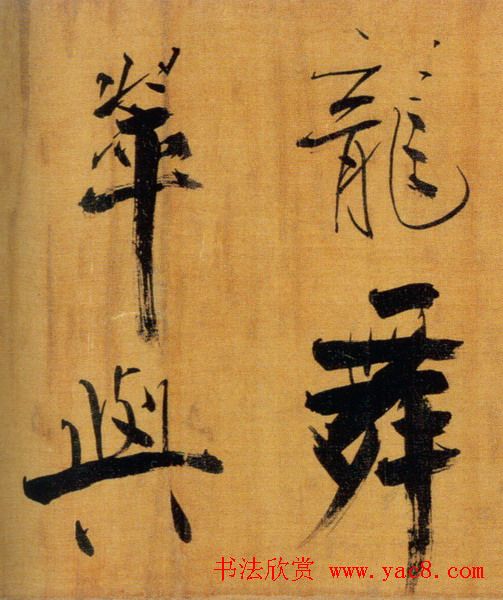 龍舞
華與
书法欣赏 www.yac8.com